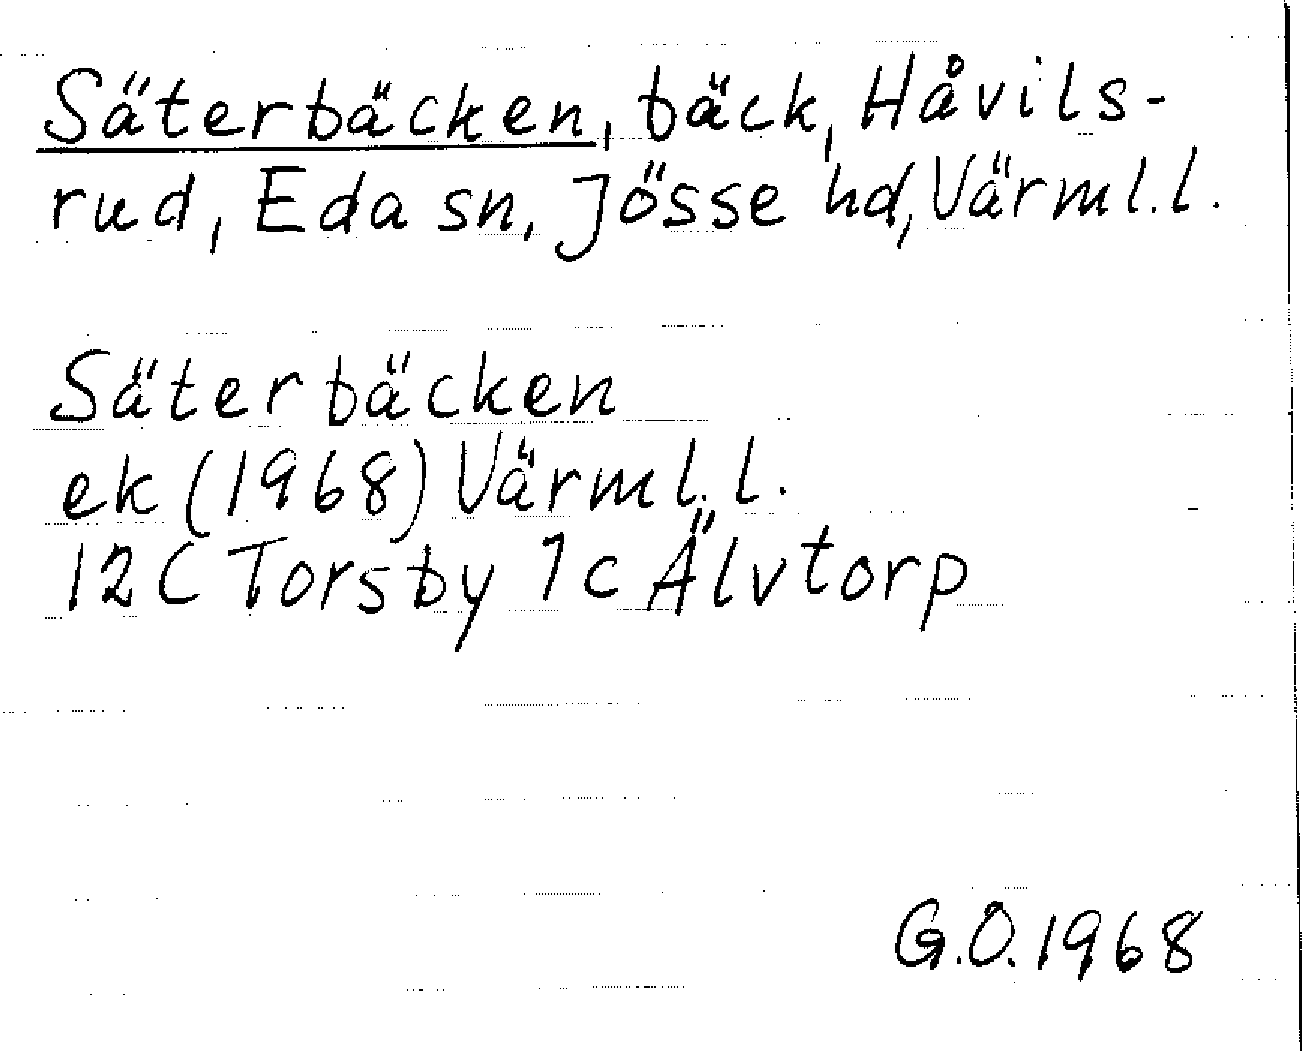 Säterbäcken, bäck, Håvils-
rud, Eda sn, Jösse hd, Värml.l.
Säterbäcken
ek (1968) Värml.l.
12C Torsby 1c Älvtorp
G.O. 1968